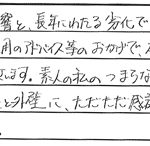 響と、長年にわたる劣化で
用のアドバイス等のおかげで、
ます。素人の私のつまらな
と外壁に、ただただ感